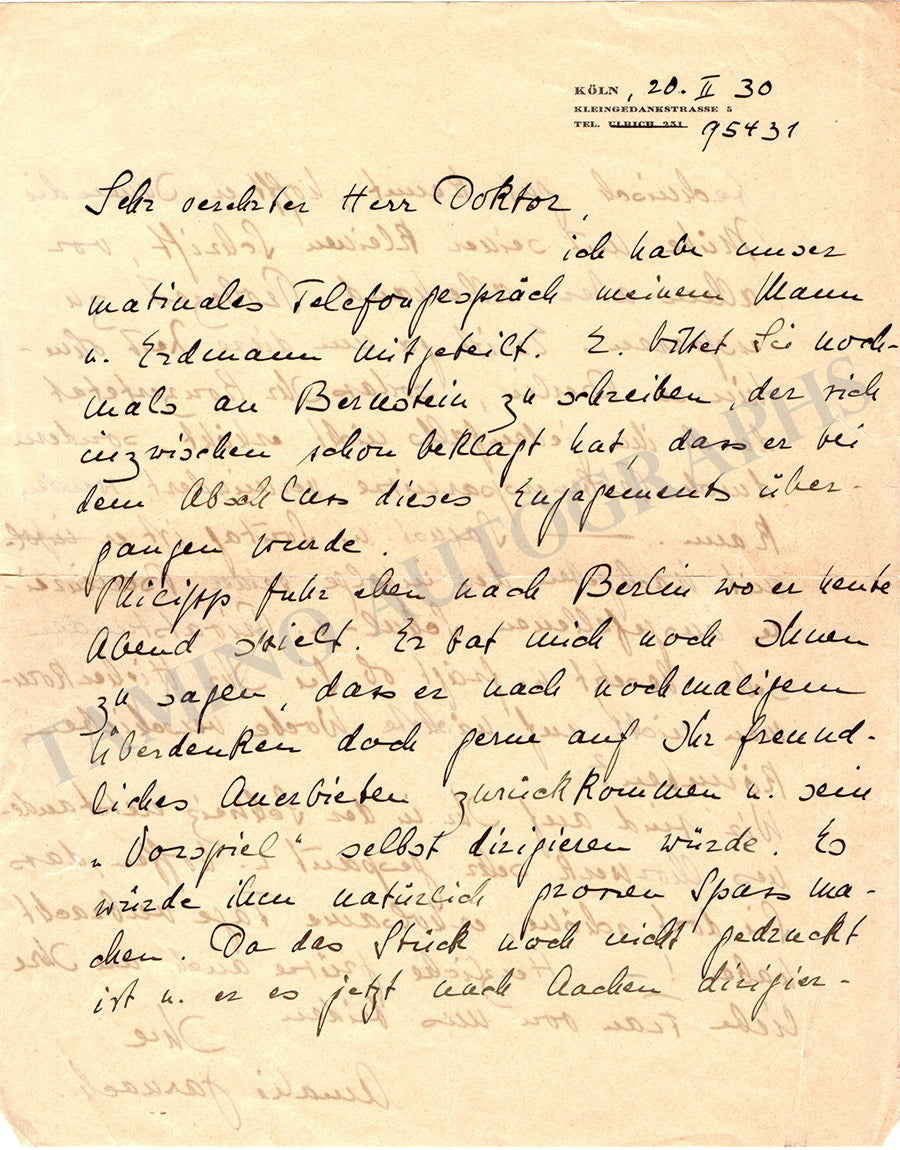 KÖLN, 20. II 30
KLEINGEDANKSTRASSE 5
TEL. ULRICH 251 95431
Sehr verehrter Herr Doktor,
ich habe unser
matinales Telefongespräch meinem Mann
u. Erdmann mitgeteilt. E. bittet Sie noch-
mals an Bernstein zu schreiben, der sich
inzwischen schon beklagt hat, dass er bei
dem Abschluss dieses Engagements über-
gangen wurde.
Philipp fuhr eben nach Berlin wo er heute
Abend spielt. Er bat mich noch Ihnen
zu sagen, dass er nach nochmaligem
Überdenken doch gerne auf Ihr freund-
liches Anerbieten zurückkommen u. sein
„Vorspiel“ selbst dirigieren würde. Es
würde ihm natürlich grossen Spass ma-
chen. Da das Stück noch nicht gedruckt
ist u. er es jetzt nach Aachen dirigier-
TAMINO AUTOGRAPHS